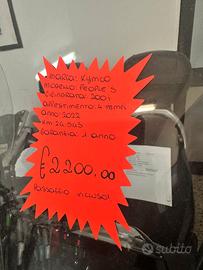 MARCA: KYMCO
MODELLO: PEOPLE S
CILINDRATA: 200i
ALLESTIMENTO: 4 TEMPI
ANNO 2022
KM 24.545
GARANZIA: 1 ANNO
€ 2200,00
PASSAGGIO INCLUSO!
subito